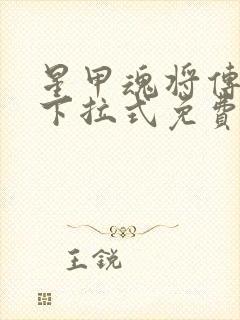 星甲魂将傳
下拉式免費
王銳